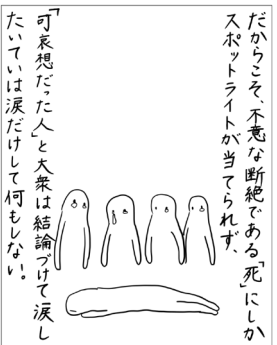 だからこそ、不意な断絶である「死」にしか
スポットライトが当てられず、
「可哀想だった人」と大衆は結論づけて涙し
たいていは涙だけして何もしない。